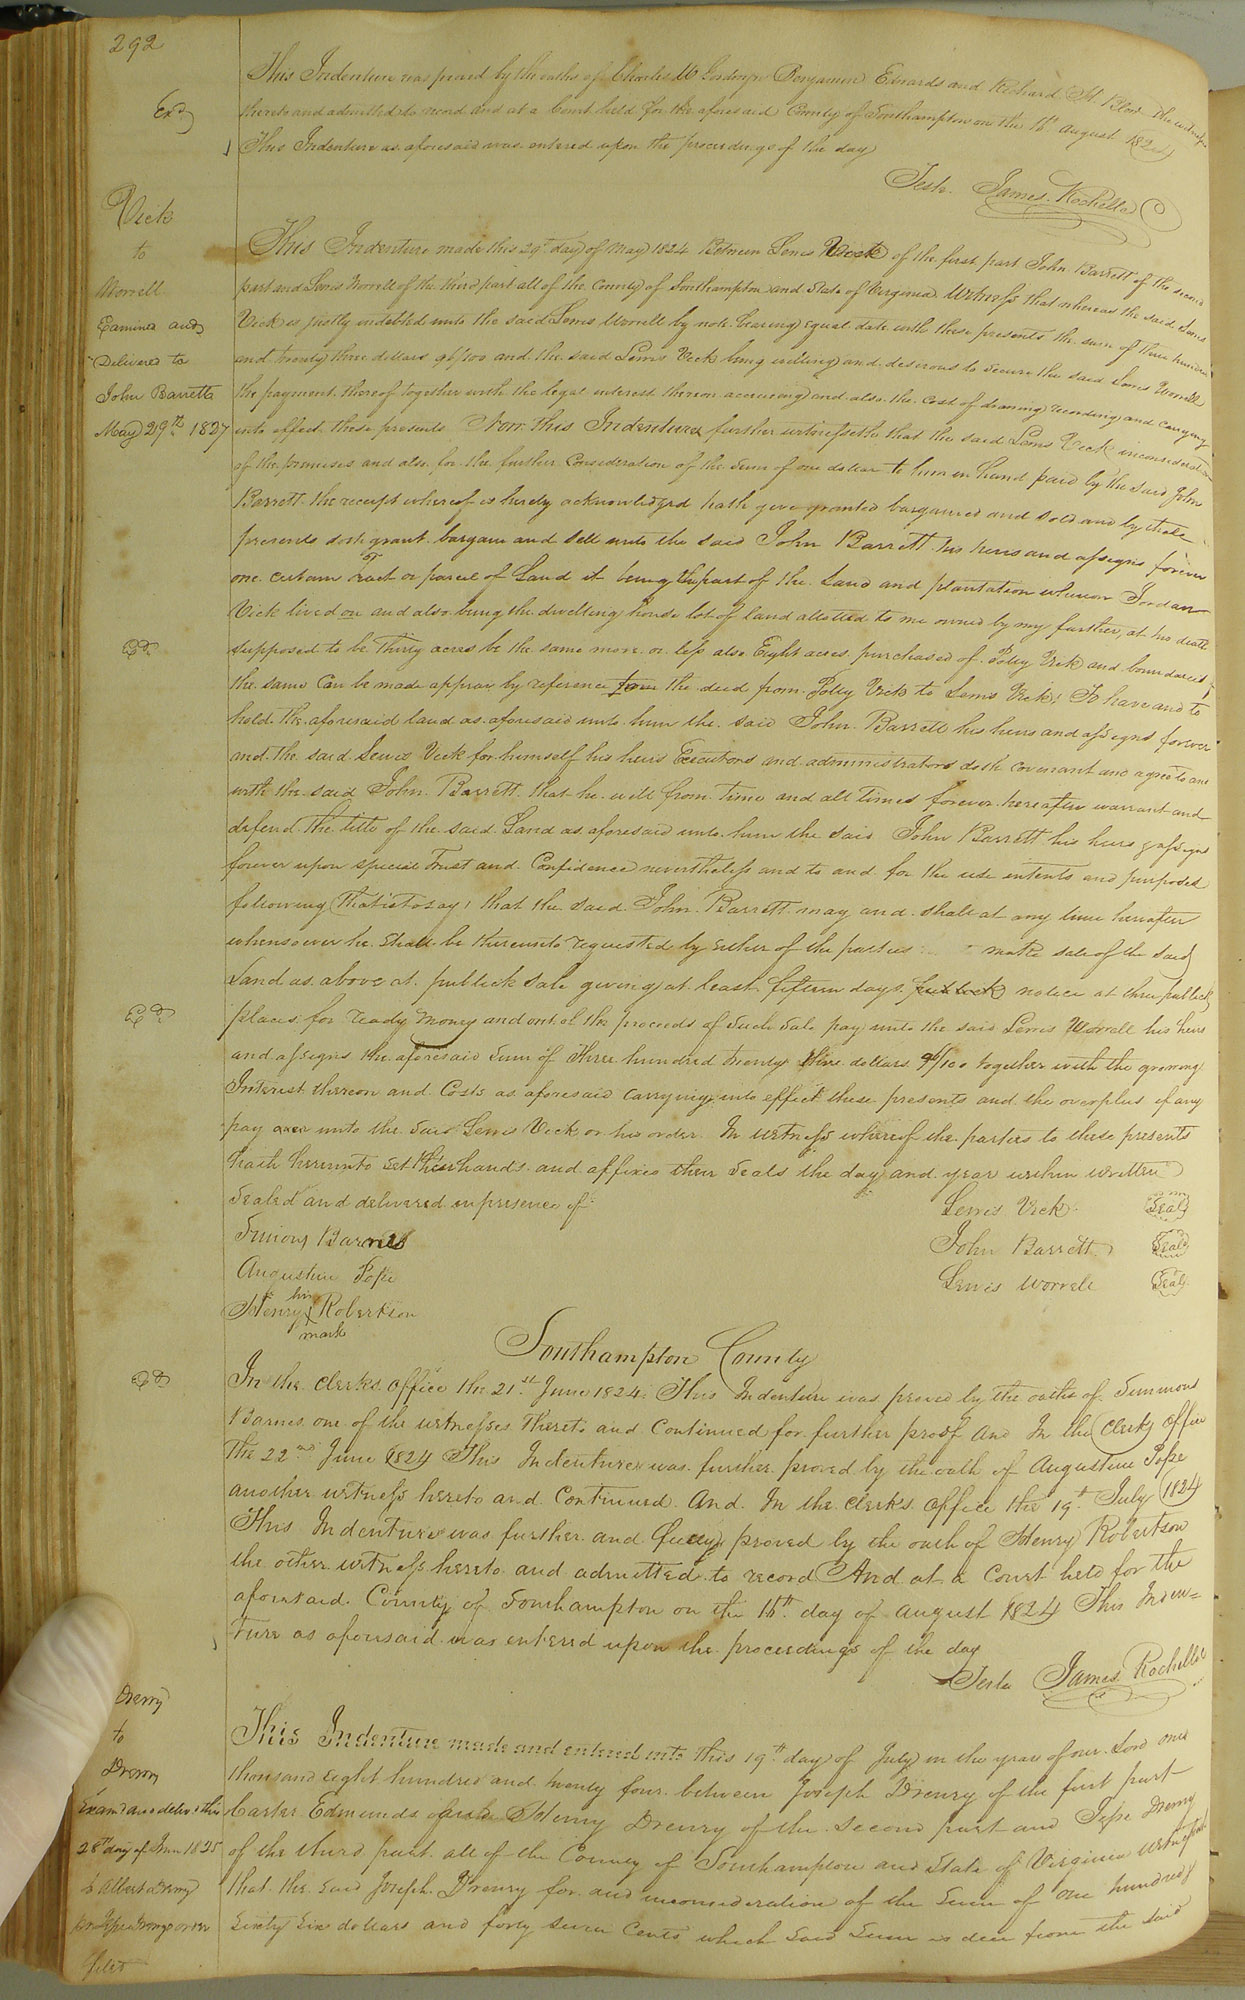 292
This Indenture was proved by the oaths of Charles Benjamin Edwards and Richard H. Blow the witnesses
Exd
thereto and admitted to record and at a Court held for the aforesaid County of Southampton on the 16th August 1824
This Indenture as aforesaid was entered upon the proceedings of the day
Teste James Rochelle C
Vick
to
Worrell
Examined and
Delivered to
John Barrett
May 29th 1827
This Indenture made this 29th day of May 1824 Between Lewis Vick of the first part John Barrett of the second
part and Lewis Worrell of the third part all of the County of Southampton and State of Virginia Witness that whereas the said Lewis
Vick is justly indebted unto the said Lewis Worrell by note bearing equal date with these presents the sum of three hundred
and twenty three dollars 96/100 and the said Lewis Vick being willing and desirous to secure the said Lewis Worrell
the payment thereof together with the legal interest thereon accruing and also the cost of drawing recording and carrying
into effect these presents Now this Indenture further witnesseth that the said Lewis Vick inconsideration
of the premises and also for the further Consideration of the sum of one dollar to him in hand paid by the said John
Barrett the receipt whereof is hereby acknowledged hath give granted bargained and sold and by these
presents doth grant bargain and sell unto the said John Barrett his heirs and assigns forever
one certain Tract or parcel of Land it being the part of the Land and plantation whereon Jordan
Vick lived on and also being the dwelling house lot of land allotted to me owned by my further at his death
supposed to be Thirty acres be the same more or less also Eight acres purchased of Polly Vick and boundaries
Exd
the same Can be made appear by reference to the deed from Polly Vick to Lewis Vick; To have and to
hold the aforesaid land as aforesaid unto him the said John Barrett his heirs and assigns forever
and the said Lewis Vick for himself his heirs Executors and administrators doth covenant and agree to and
with the said John Barrett that he will from Time and all times forever hereafter warrant and
defend the title of the said Land as aforesaid unto him the said John Barrett his heirs & assigns
forever upon special Trust and Confidence nevertheless and to and for the use intents and purposes
following (That is to say) that the said John Barrett may and shall at any time hereafter
whensoever he shall be thereunto requested by either of the parties make sale of the said
Land as above at publick sale giving at least fifteen days publick notice at three publick
Exd
places for ready money and out of the proceeds of such sale pay unto the said Lewis Worrell his heirs
and assigns the aforesaid sum of Three hundred twenty three dollars 96/100 together with the growing
Interest thereon and Costs as aforesaid carrying into effect these presents and the overplus if any
pay over unto the said Lewis Vick or his order In witness whereof the parties to these presents
hath hereunto set their hands and affixed their seals the day and year within written
Sealed and delivered in presence of
Lewis Vick Seal
Simions Barnes
John Barrett Seal
Augustine Pope
Lewis Worrell Seal
his
Henry X Robertson
mark
Southampton County
Exd
In the Clerks office the 21st June 1824 This Indenture was proved by the oaths of Simmons
Barnes one of the witnesses Thereto and Continued for further proof And In the Clerks office
The 22nd June 1824 This Indenture was further proved by the oath of Augustine Pope
another witness hereto and Continued And In the Clerks office the 19th July 1824
This Indenture was further and fully proved by the oath of Henry Robertson
the other witness hereto and admitted to record And at a Court held for the
aforesaid County of Southampton on the 16th day of August 1824 This Inden=
ture as aforesaid was entered upon the proceedings of the day
Teste James Rochelle
Drewry
to
Drewry
Examd and deliv
28th day of June 1825
to Albert Drewry
filed
This Indenture made and entered into this 19th day of July in the year of our Lord one
thousand eight hundred and twenty four between Joseph Drewry of the first part
Carter Edmunds and Henry Drewry of the second part and Jesse Drewry
of the third part all of the County of Southampton and State of Virginia witnesseth
that the said Joseph Drewry for and inconsideration of the sum of one hundred
sixty six dollars and forty seven Cents which said sum is due from the said